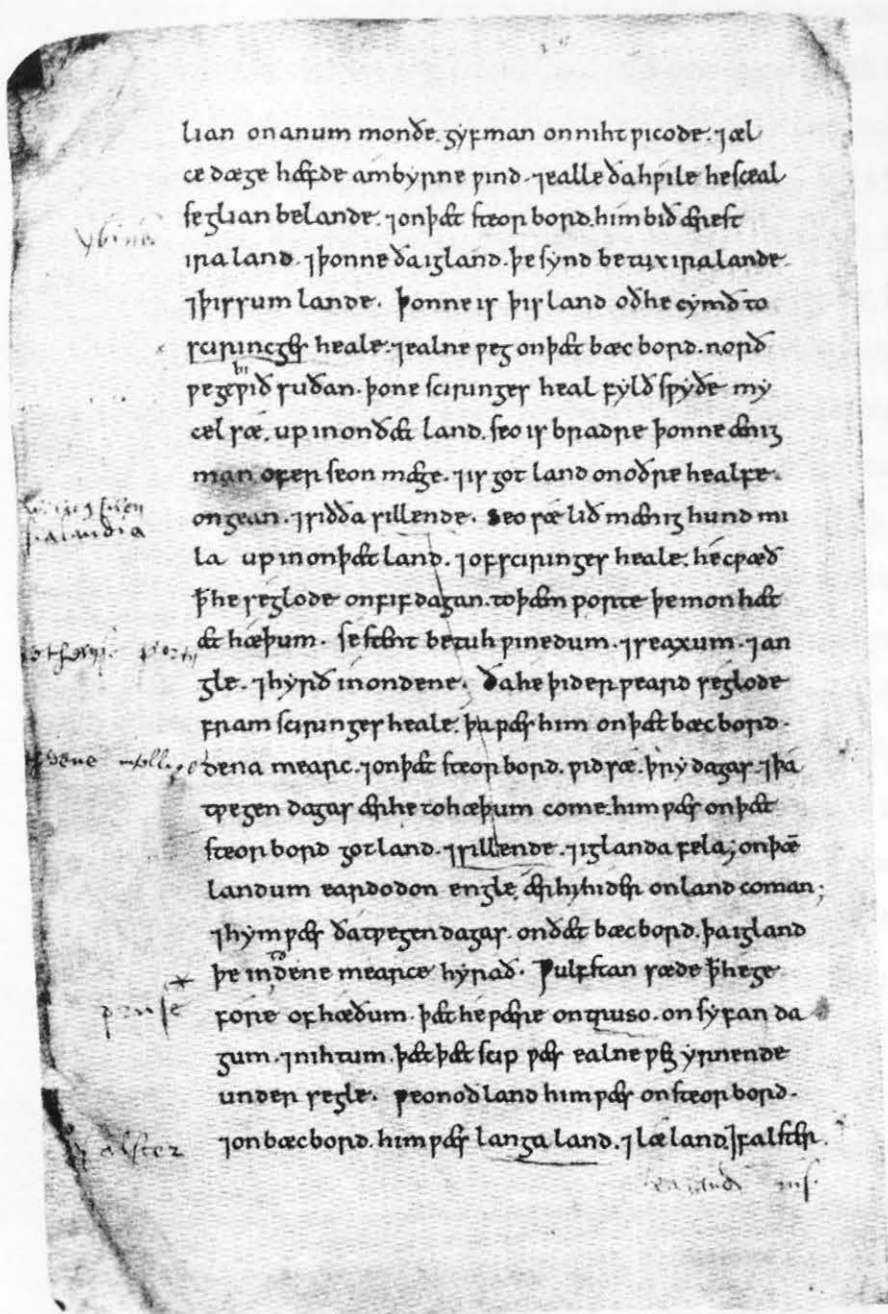 lian on anum monðe. gyf man on niht ƿicode. ⁊ æl
ce dæge hæfde ambyrne ƿind. ⁊ ealle ða hƿile he sceal
seglian be lande. ⁊ on þæt steorbord. him bið ærest
ira land. ⁊ þonne ða igland. þe synd betux ira lande.
⁊ þissum lande. þonne is þis land oð he cymð to
scirincges heale. ⁊ ealne ƿeg on þæt bæcbord. norð
ƿege ƿið suðan. þone sciringes heal fylð sƿyðe my
cel sæ. up in on ðæt land. seo is bradre þonne ænig
man ofer seon mæge. ⁊ is gotland on oðre healfe.
ongean. ⁊ siððа sillende. seo sæ lið mænig hund mi
la up in on þæt land. ⁊ of sciringes heale. he cƿæð
ꝥ he seglode on fif dagan. to þæm porte þe mon hæt
æt hæþum. se stent betuh ƿinedum. ⁊ seaxum. ⁊ an
gle. ⁊ hyrð in on dene. ða he þiderƿeard seglode
fram sciringes heale. þa ƿæs him on þæt bæcbord.
dena mearc. ⁊ on þæt steorbord. ƿid sæ. þry dagas. ⁊ þa
tƿegen dagas ær he to hæþum come. him ƿæs on þæt
steorbord gotland. ⁊ sillende. ⁊ iglanda fela; on þæ̅
landum eardodon engle, ær hi hider on land coman;
⁊ hym ƿæs ða tƿegen dagas. on ðæt bæcbord. þa igland
þe in to dene mearce hyrað. Ƿulfstan sæde ꝥ he ge
fore of hæðum. þæt he ƿære on truso. on syfan da
gum. ⁊ nihtum. þæt þæt scip ƿæs ealne ƿeg yrnende
under segle. ƿeonoðland him ƿæs on steorbord.
⁊ on bæcbord. him ƿæs langa land. ⁊ læland. ⁊ falster.